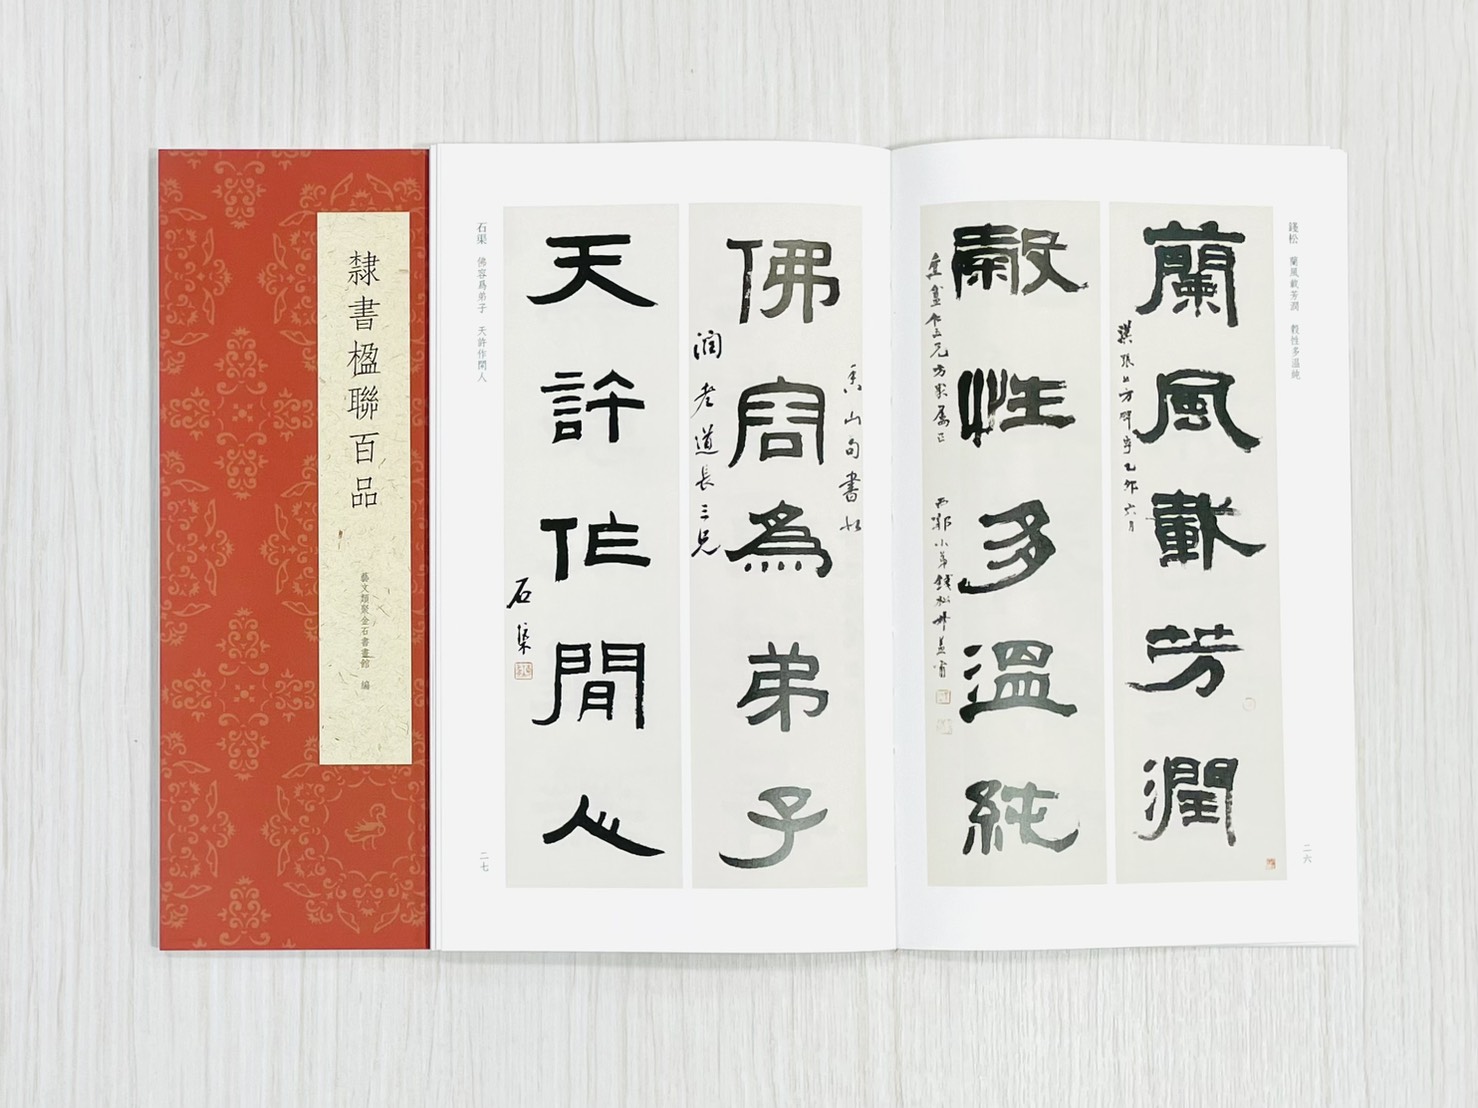 隸書楹聯百品
藝文類聚金石書畫館 編
錢松 蘭風載芳潤 穀性多温純
蘭風載芳潤
撫張公方碑字乙卯六月
穀性多溫純
作五兄方家屬正
西郭小弟錢松
二六
佛容為弟子
香山句書於
潤老道長三兄
天許作閒人
石渠
石渠 佛容爲弟子 天許作閑人
二七